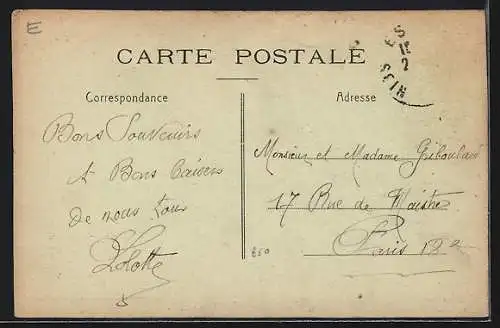 E
CARTE POSTALE
Correspondance
Adresse
Bons Souvenirs
& Bons baisers
de nous tous
Monsieur et Madame
17 Rue de
Paris 12e
850